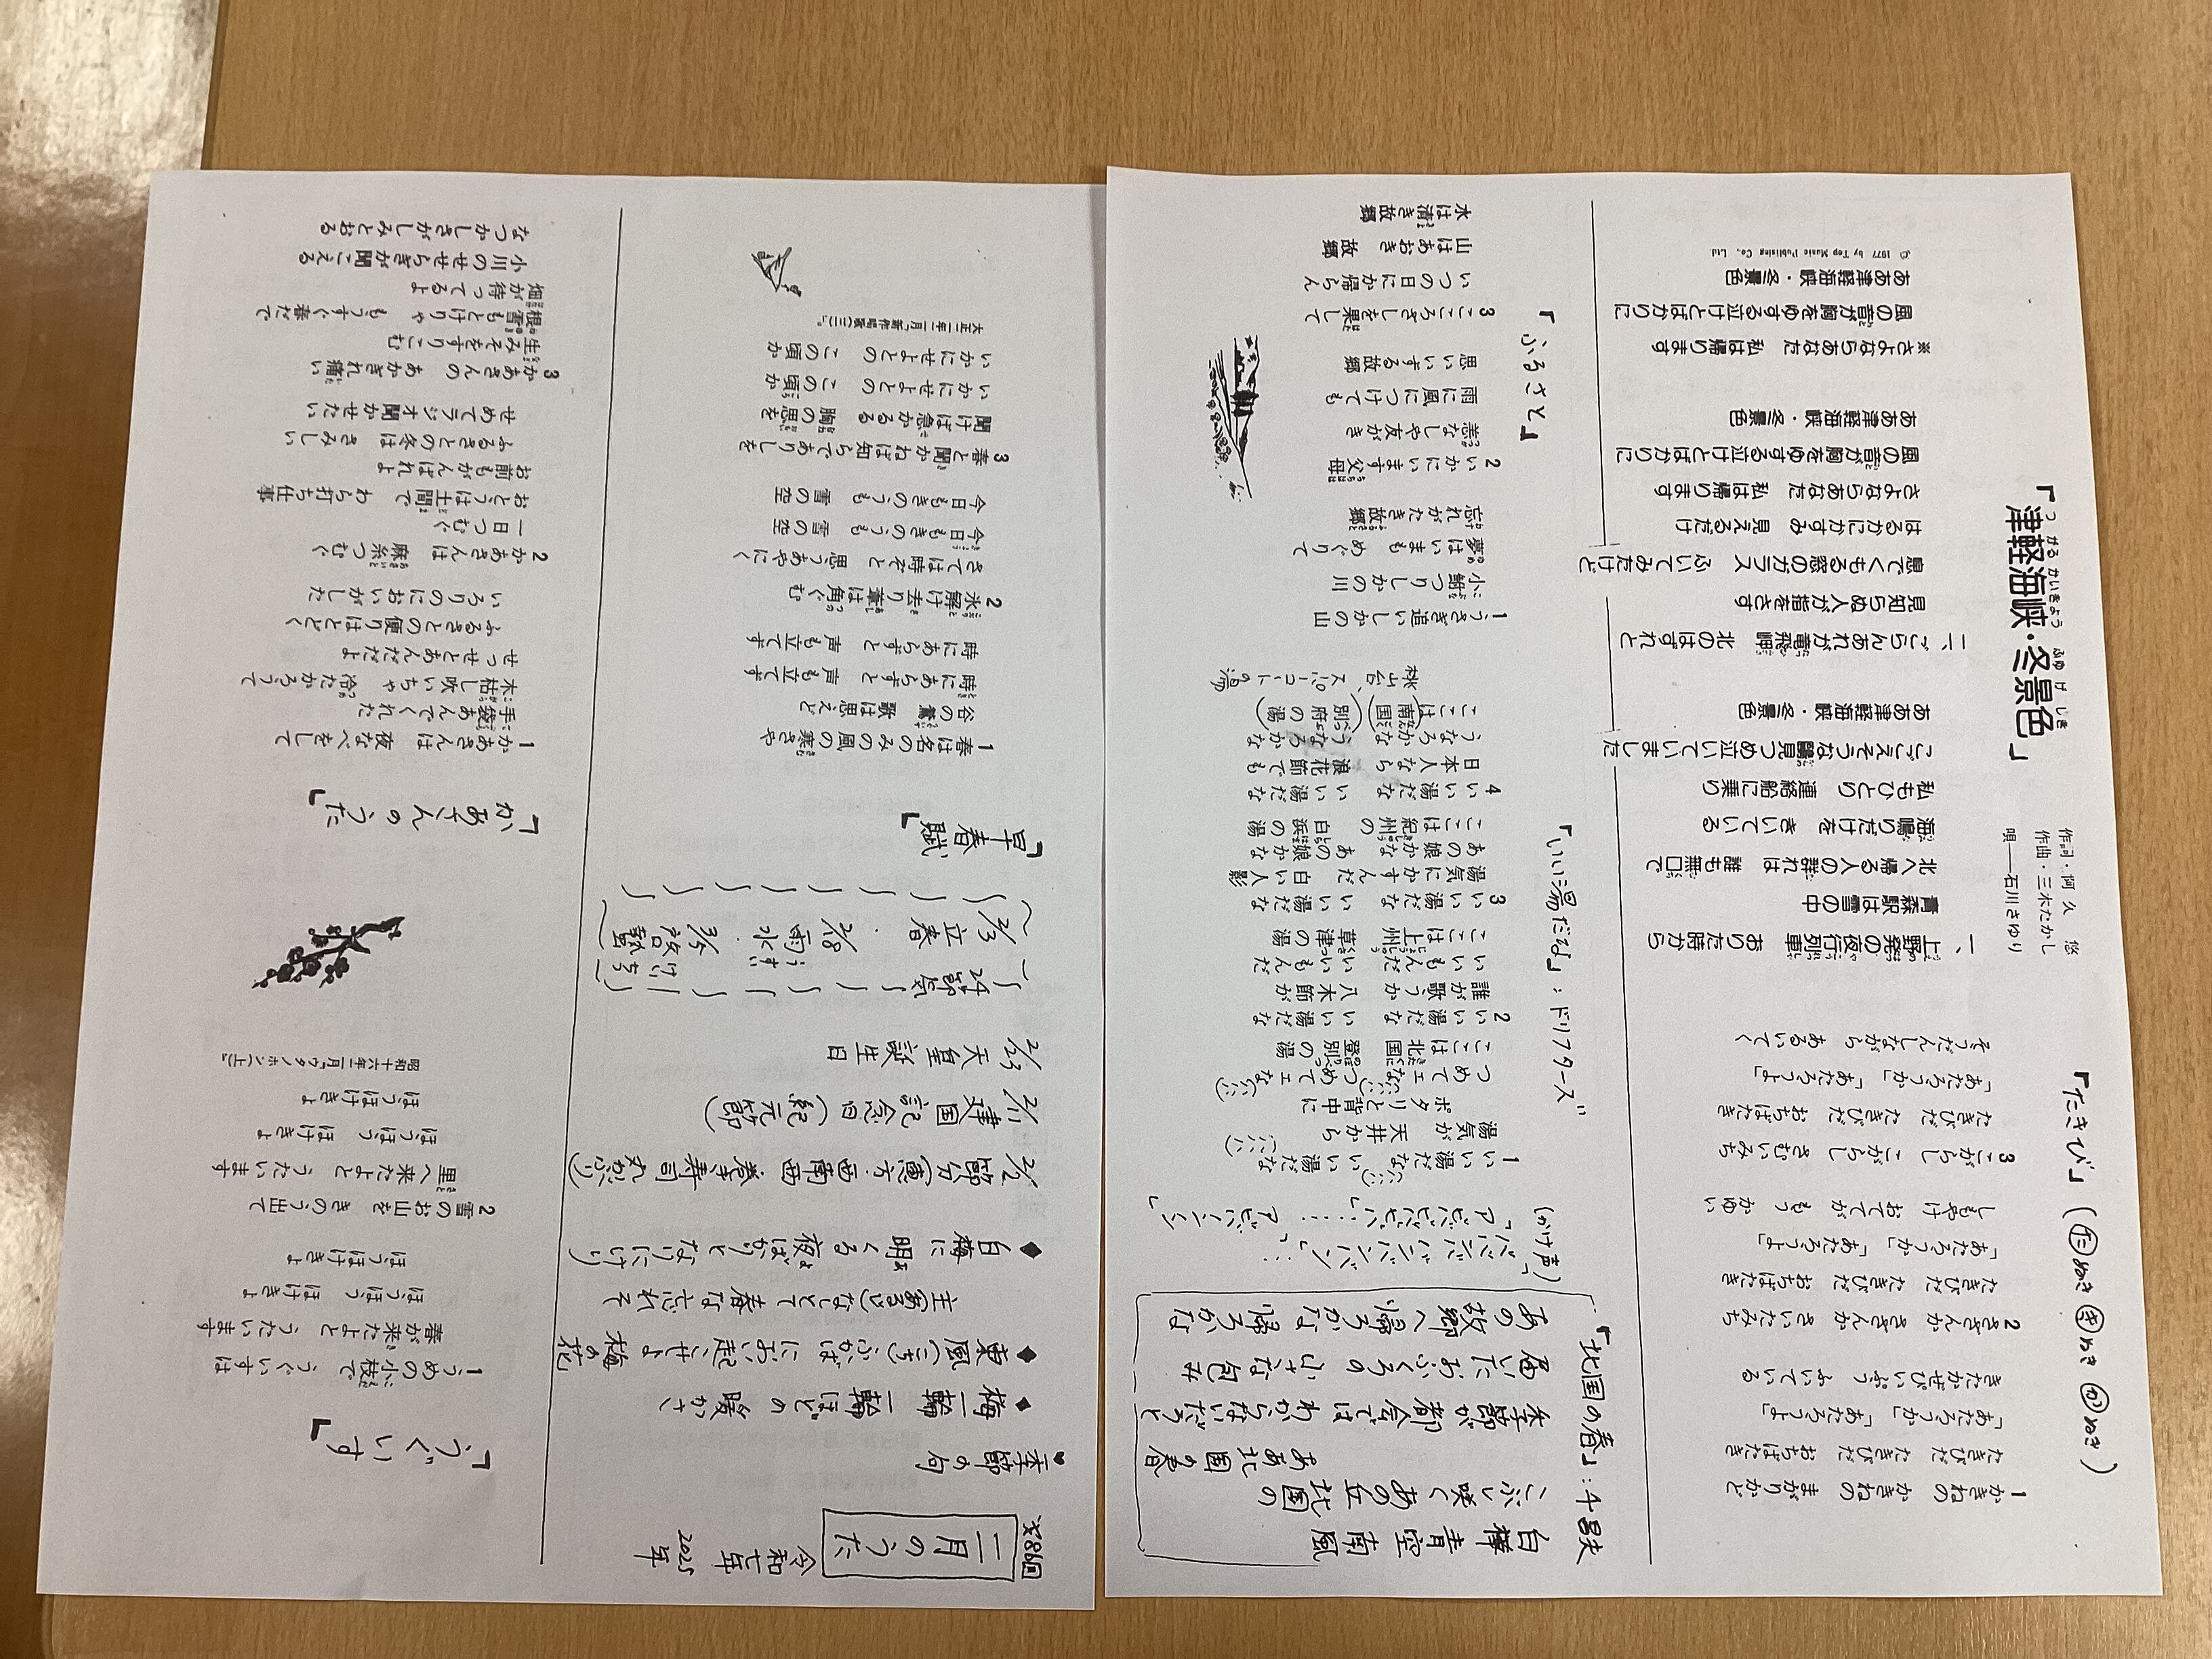 二月のうた
令和七年
2025年
季節の句
梅一輪 一輪ほどの 暖かさ
東風(こち)ふかば におい起こせよ 梅の花
主(あるじ)なしとて 春な忘れそ
白梅に 明くる夜ばかりと なりにけり
2/2 節分(恵方・西南西 巻寿司 丸かぶり)
2/11 建国記念日(紀元節)
2/23 天皇誕生日
24節気
2/3 立春・2/18 雨水・3/5 啓蟄
うすい けいちつ
「早春賦」
1 春は名のみの風の寒さや
谷の鶯 歌は思えど
時にあらずと 声も立てず
時にあらずと 声も立てず
2 氷解け去り葦は角ぐむ
さては時ぞと 思うあやにく
今日もきのうも 雪の空
今日もきのうも 雪の空
3 春と聞かねば知らでありしを
聞けば急かるる 胸の思を
いかにせよとの この頃か
いかにせよとの この頃か
大正二年二月『新作唱歌(三)』
「うぐいす」
1 うめの小枝で うぐいすは
春が来たよと うたいます
ほうほう ほけきょ
ほうほけきょ
2 雪のお山を きのう出て
里へ来たよと うたいます
ほうほう ほけきょ
ほうほけきょ
昭和十六年二月『ウタノホン(上)』
「かあさんのうた」
1 かあさんは 夜なべをして
手袋あんでくれた
木枯し吹いちゃ 冷たかろうて
せっせとあんだだよ
ふるさとの便りはとどく
いろりのにおいがした
2 かあさんは 麻糸つむぐ
一日つむぐ
おとうは土間で わら打ち仕事
お前もがんばれよ
ふるさとの冬は さみしい
せめてラジオ聞かせたい
3 かあさんの あかぎれ痛い
生みそをすりこむ
根雪もとけりゃ もうすぐ春だで
畑が待ってるよ
小川のせせらぎが聞こえる
なつかしさがしみとおる
「たきび」(たぬき きぬき かぬき)
1 かきねの かきねの まがりかど
たきびだ たきびだ おちばたき
「あたろうか」「あたろうよ」
きたかぜぴいぷう ふいている
2 さざんか さざんか さいたみち
たきびだ たきびだ おちばたき
「あたろうか」「あたろうよ」
しもやけ おててが もう かゆい
3 こがらし こがらし さむいみち
たきびだ たきびだ おちばたき
「あたろうか」「あたろうよ」
そうだんしながら あるいてく
「津軽海峡・冬景色」
つがるかいきょう ふゆげしき
作詞・阿 久 悠
作曲・三木たかし
唄――石川さゆり
一、上野発の夜行列車 おりた時から
青森駅は雪の中
北へ帰る人の群れは 誰も無口で
海鳴りだけを きいている
私もひとり 連絡船に乗り
こごえそうな鷗見つめ泣いていました
ああ津軽海峡・冬景色
二、ごらんあれが竜飛岬 北のはずれと
見知らぬ人が指をさす
息でくもる窓のガラス ふいてみたけど
はるかにかすみ 見えるだけ
さよならあなた 私は帰ります
風の音が胸をゆする泣けとばかりに
ああ津軽海峡・冬景色
※さよならあなた 私は帰ります
風の音が胸をゆする泣けとばかりに
ああ津軽海峡・冬景色
© 1977 by Top Music Publishing Co., Ltd.
「北国の春」:千昌夫
白樺 青空 南風
こぶし咲くあの丘 北国の
ああ北国の春
季節が都会では わからないだろうと
届いたおふくろの 小さな包み
あの故郷へ帰ろかな 帰ろかな
「いい湯だな」:ドリフターズ
(かけ声)
1 いい湯だな いい湯だな
湯気が 天井から
ポタリと背中に
つめてェな つめてェな
ここは北国 登別の湯
2 いい湯だな いい湯だな
誰が歌うか 八木節が
いいもんだ いいもんだ
ここは上州 草津の湯
3 いい湯だな いい湯だな
湯気にかすんだ 白い人影
あの娘かな あの娘かな
ここは紀州の 白浜の湯
4 いい湯だな いい湯だな
日本人なら 浪花節でも
うなろかな うなろかな
ここは南国 別府の湯
桃山台、スパコートの湯
「ふるさと」
1 うさぎ追いしかの山
小鮒つりしかの川
夢はいまも めぐりて
忘れがたき故郷
2 いかにいます父母
恙なしや友がき
雨に風につけても
思いいずる故郷
3 こころざしを果して
いつの日にか帰らん
山はあおき 故郷
水は清き故郷